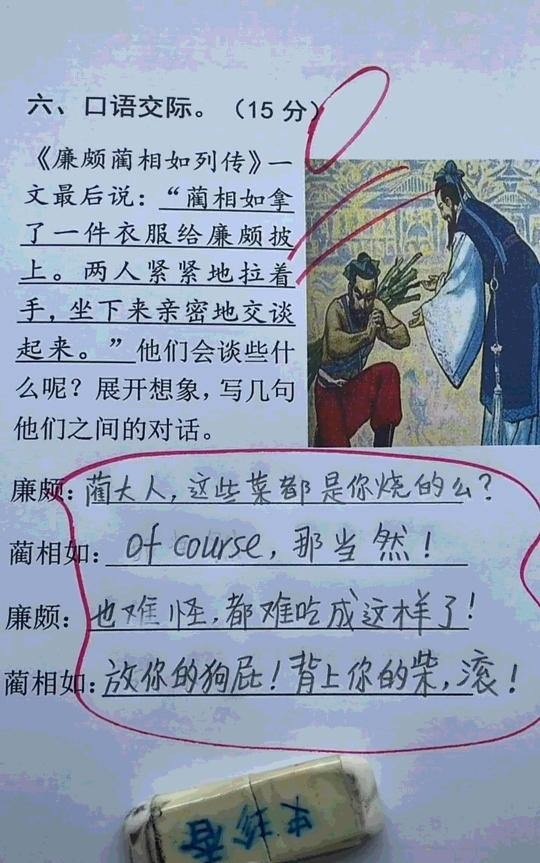 六、口语交际。（15 分）
《廉颇蔺相如列传》一
文最后说：“蔺相如拿
了一件衣服给廉颇披
上。两人紧紧地拉着
手，坐下来亲密地交谈
起来。”他们会谈些什
么呢？展开想象，写几句
他们之间的对话。
廉颇：蔺大人，这些菜都是你烧的么？
蔺相如：Of course，那当然！
廉颇：也难怪，都难吃成这样了！
蔺相如：放你的狗屁！背上你的柴，滚！